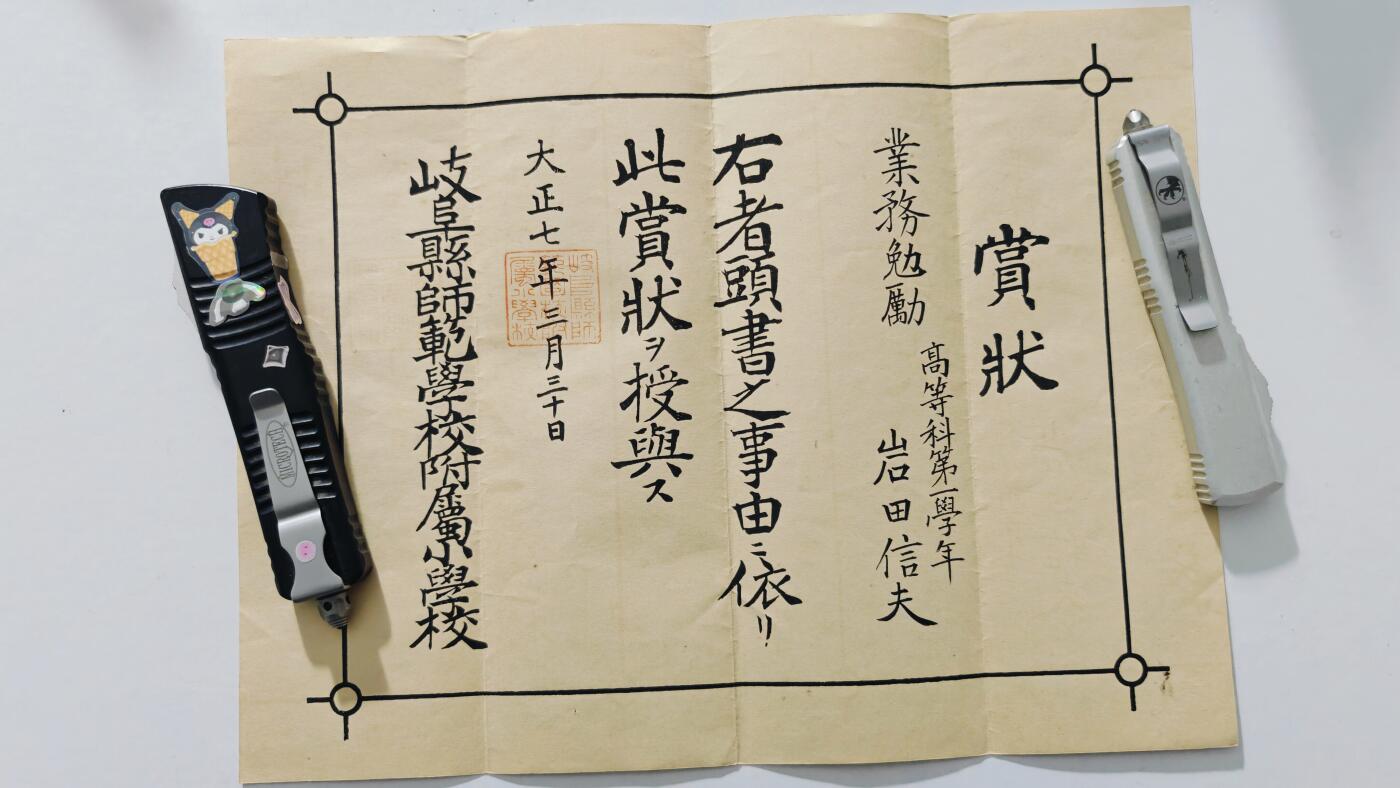 賞狀
業務勉勵
高等科第一學年
岩田信夫
右者頭書之事由ニ依リ
此賞狀ヲ授與ス
大正七年三月三十日
岐阜縣師範學校附屬小學校
MICROTECH